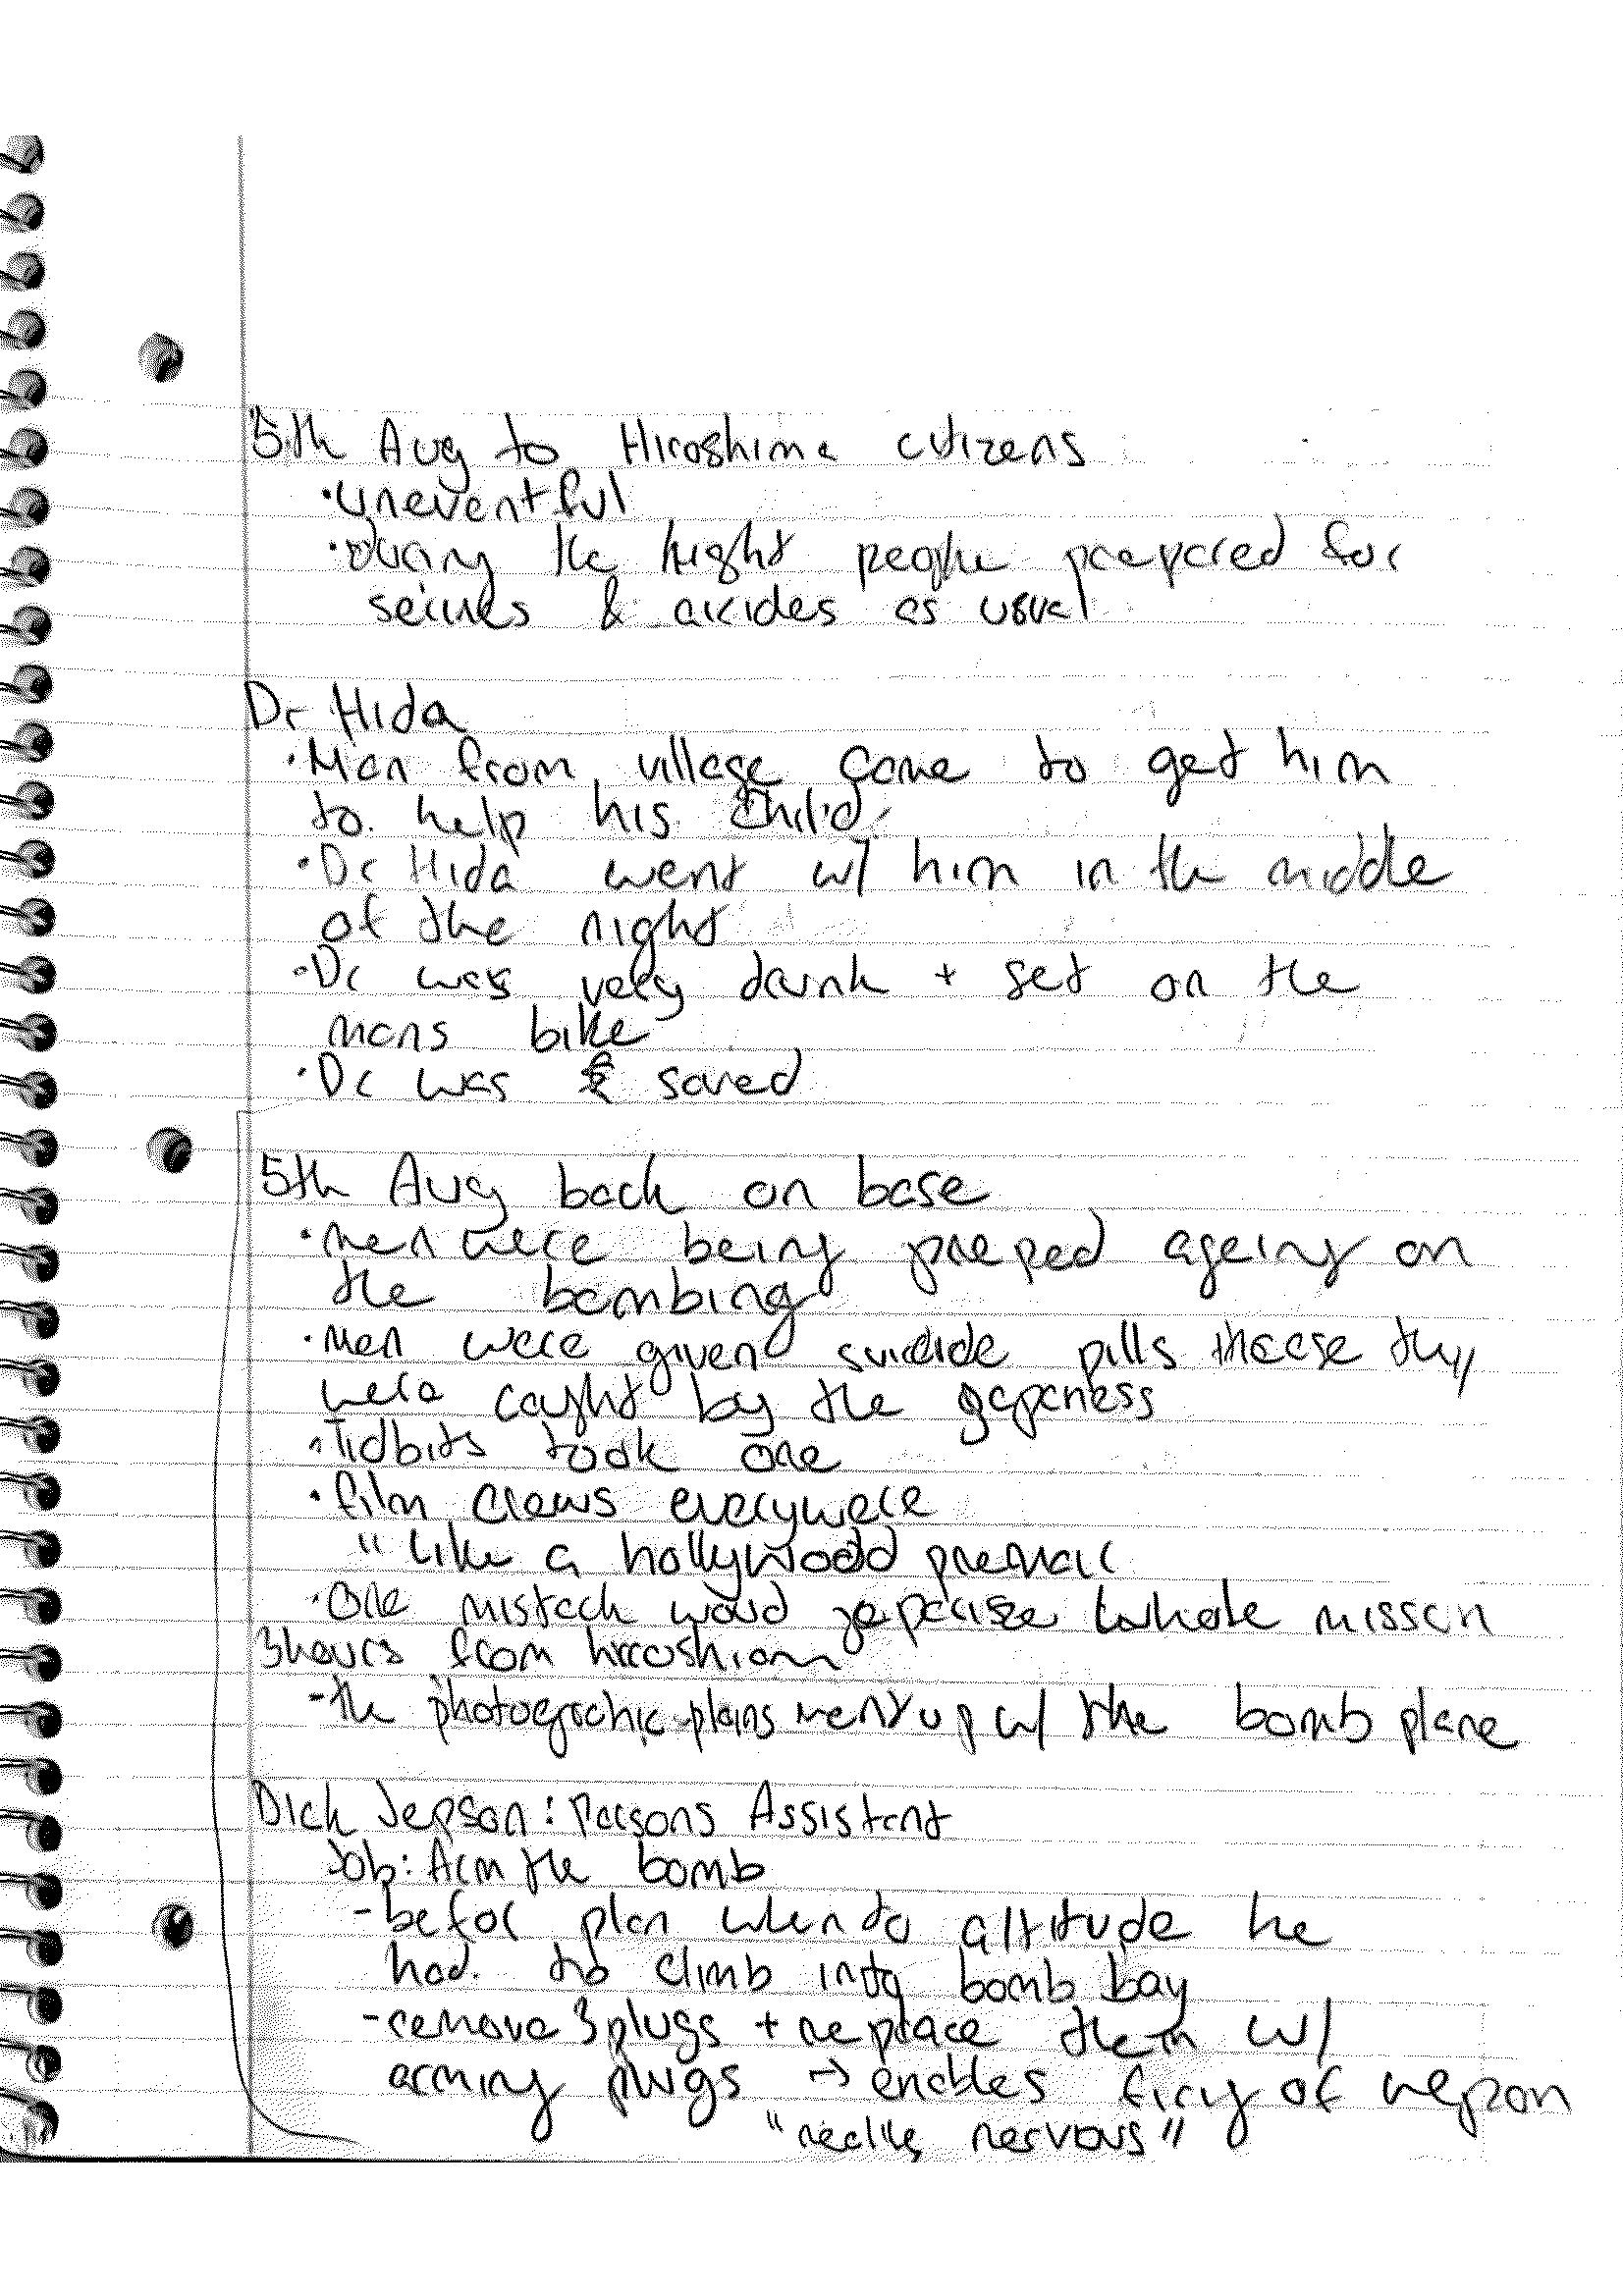 5th Aug to Hiroshima citizens
·uneventful
·during the night people prepared for
& as usual
Dr Hida
·Man from village came to get him
to help his child
·Dr Hida went w/ him in the middle
of the night
·Dr was very drunk + set on the
mans bike
·Dr was saved
5th Aug back on base
·men were being preped ageing on
the bombing
·men were given suicide pills they
were caught by the
·Tidbits took one
·film crews everywere
"like a hollywood
·One mistack whole
3hours from
-the photographic plans went up w/ the bomb plane
Dick Jepson: Parsons Assistant
Job: Arm the bomb
-befor plan when to altitude he
had to climb into bomb bay
-remove 3 plugs + replace them w/
arming plugs → enables of
" nervous"